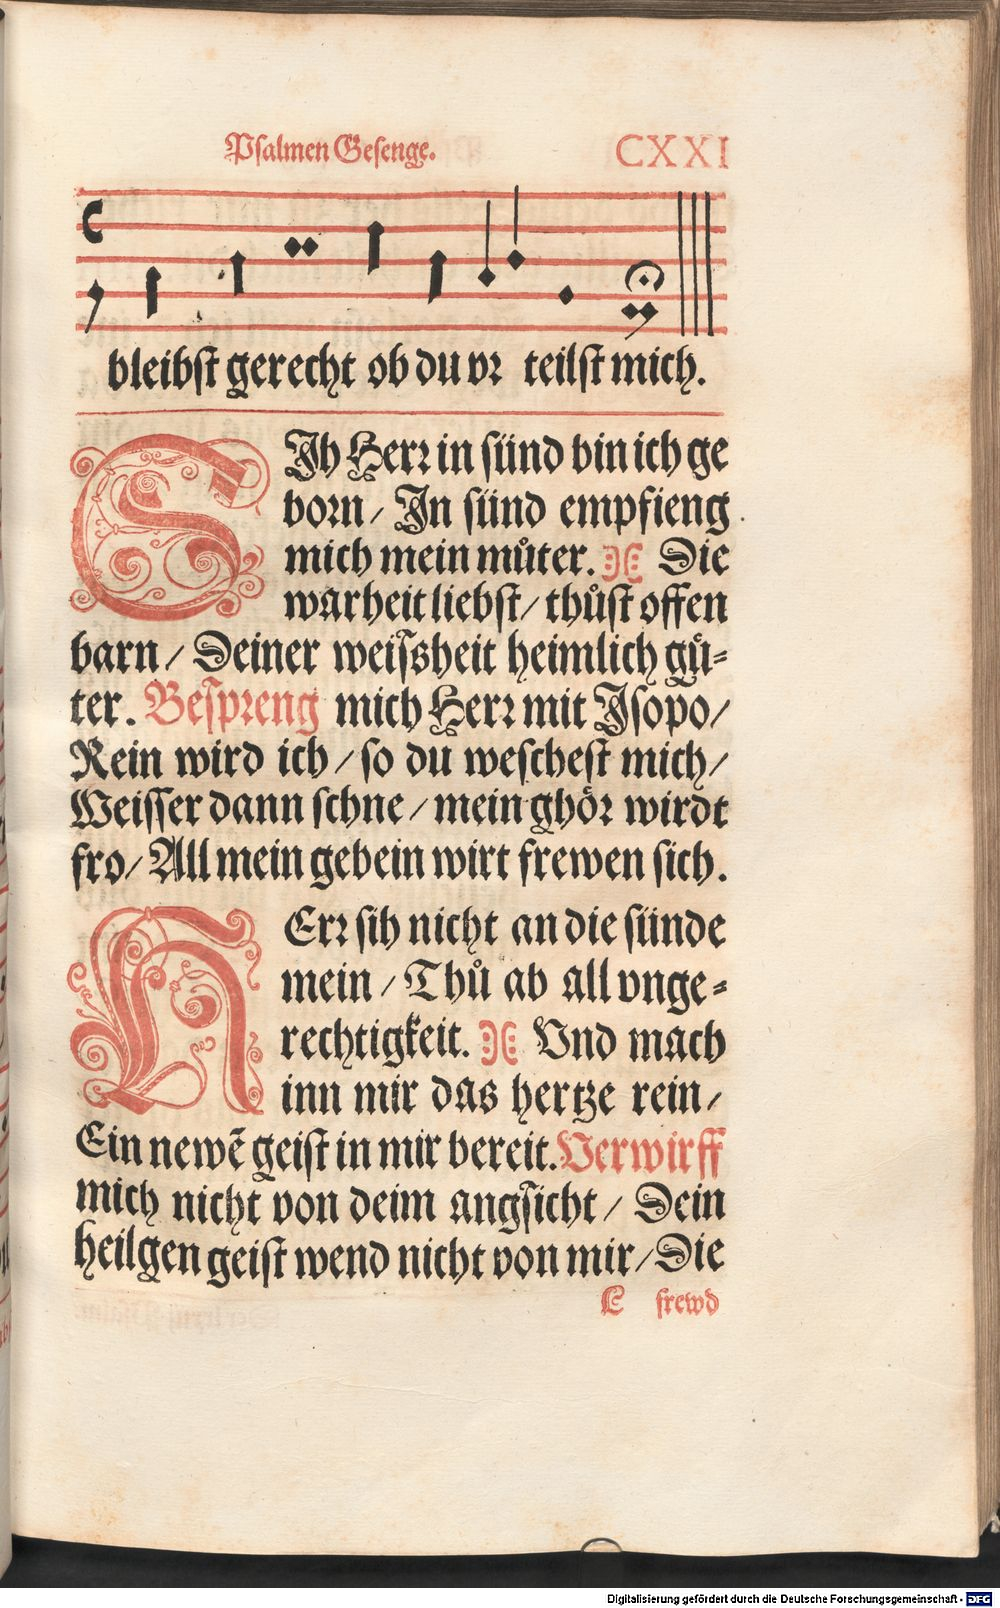 Psalmen Gesenge. CXXI
bleibst gerecht ob du vr teilst mich.
SIh Herr in sünd bin ich ge
born / In sünd empfieng
mich mein můter. Die
warheit liebst / thůst offen
barn / Deiner weißheit heimlich gů-
ter. Bespreng mich Herr mit Jsopo /
Rein wird ich / so du weschest mich /
Weisser dann schne / mein ghör wirdt
fro / All mein gebein wirt frewen sich.
HErr sih nicht an die sünde
mein / Thů ab all vnge-
rechtigkeit. Vnd mach
inn mir das hertze rein /
Ein newẽ geist in mir bereit. Verwirff
mich nicht von deim angsicht / Dein
heilgen geist wend nicht von mir / Die
L frewd
Digitalisierung gefördert durch die Deutsche Forschungsgemeinschaft - DFG